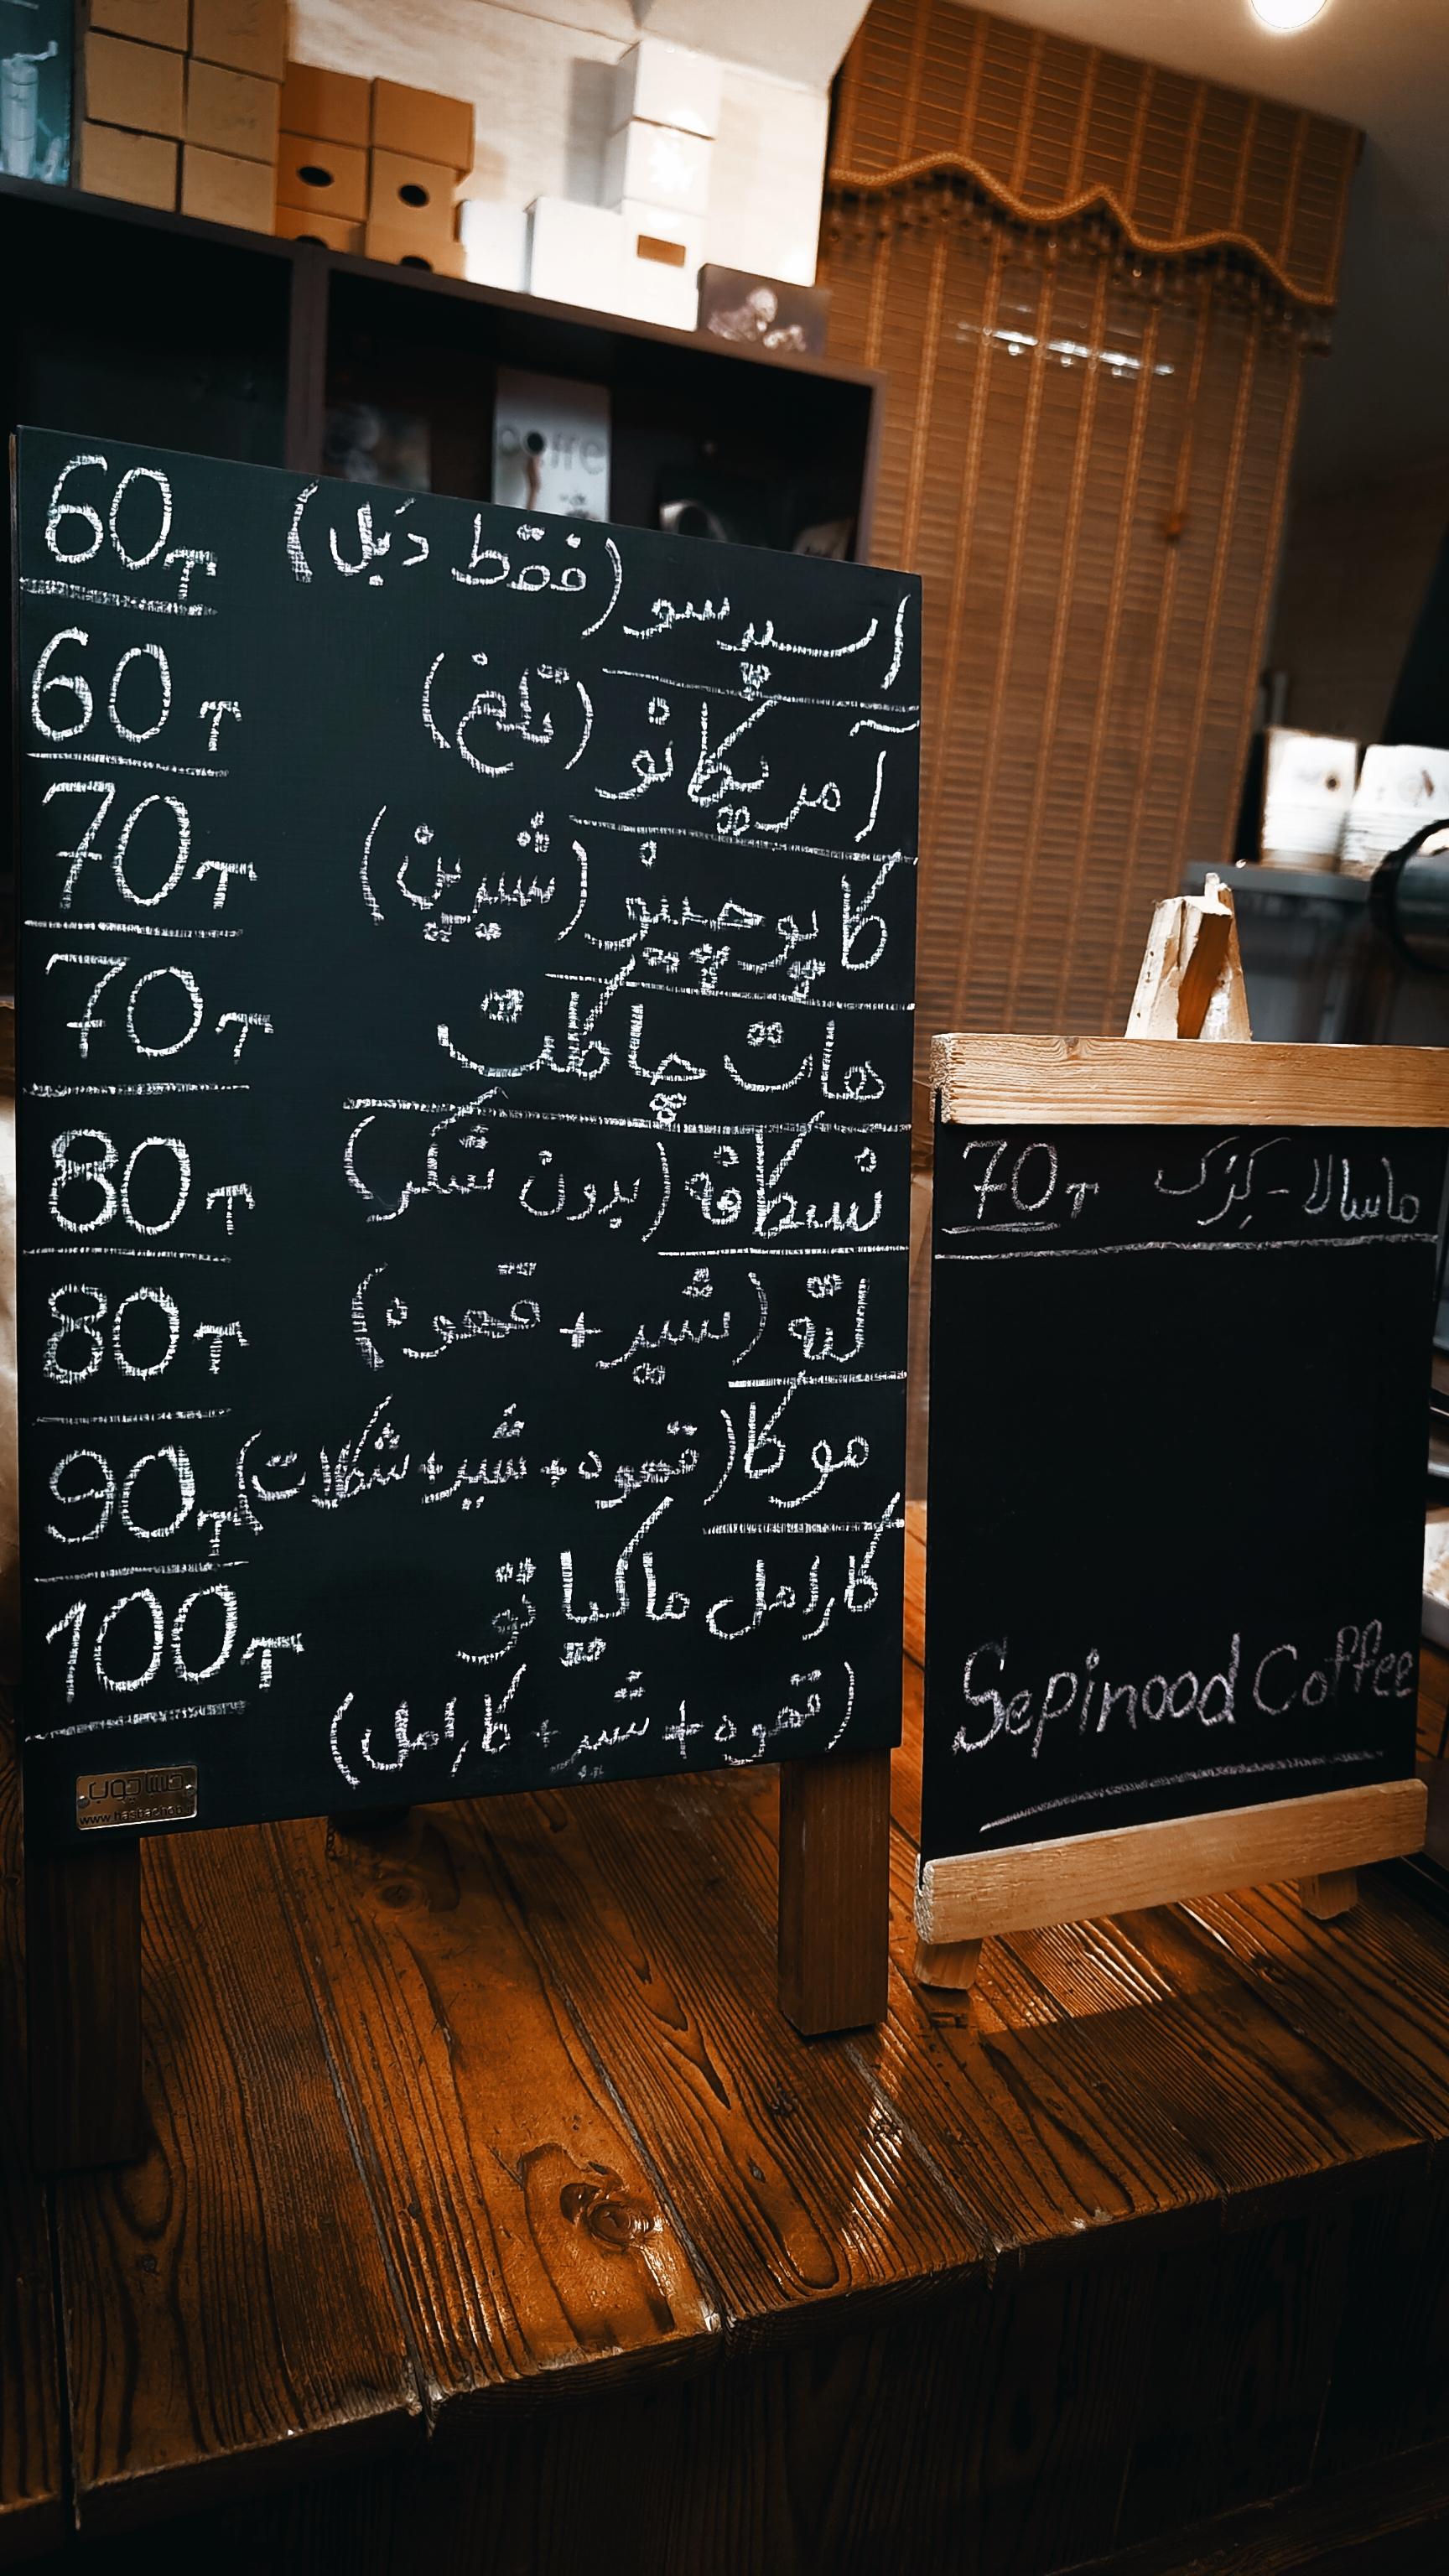 اسپرسو (فقط دَبل) 60T
آمریکانو (تلخ) 60T
کاپوچینو (شیرین) 70T
هات چاکلت 70T
نسکافه (بدون شکر) 80T
لته (شیر + قهوه) 80T
موکا (قهوه + شیر + شکلات) 90T
کارامل ماکیاتو 100T
(قهوه + شیر + کارامل)
ماسالا - کَرَک 70T
Sepinood Coffee
coffee